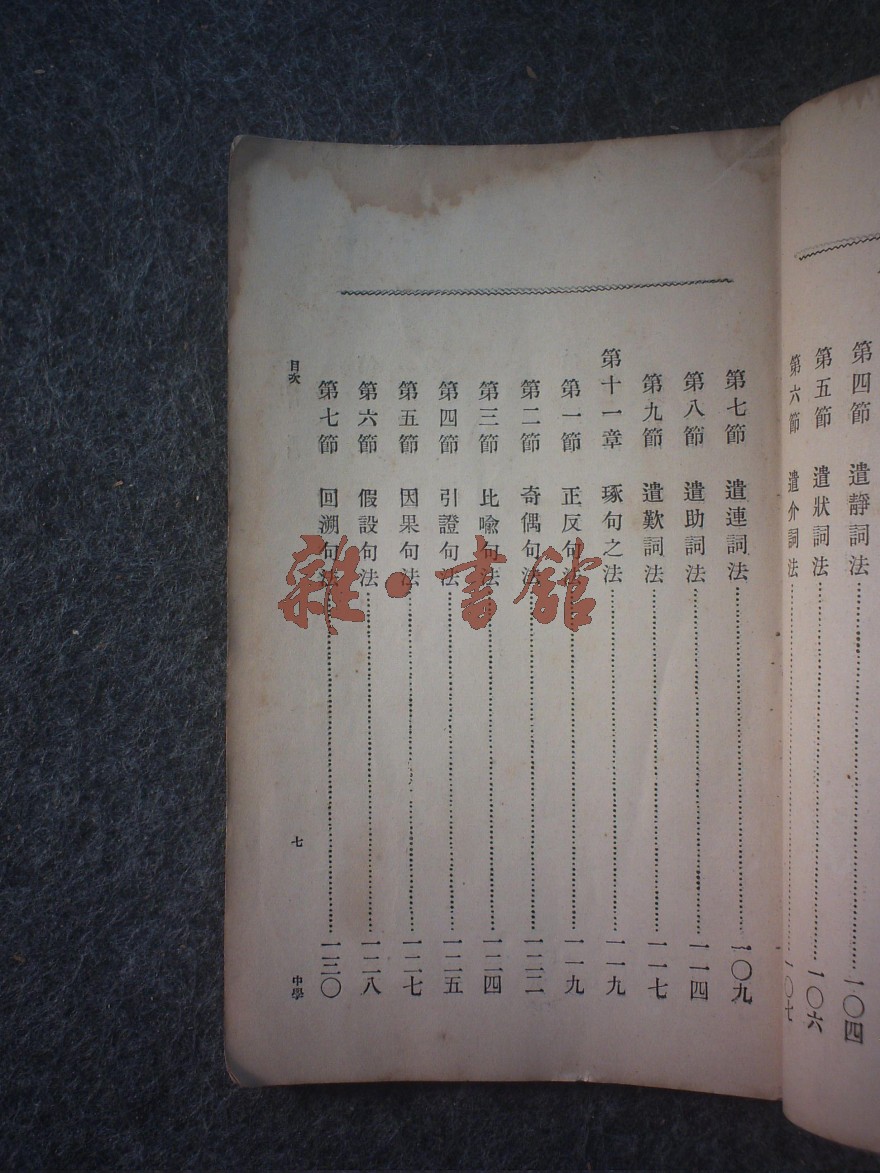 第四節 遣靜詞法……一〇四
第五節 遣狀詞法……一〇六
第六節 遣介詞法……一〇七
第七節 遣連詞法……一〇九
第八節 遣助詞法……一一四
第九節 遣歎詞法……一一七
第十一章 琢句之法……一一九
第一節 正反句法……一一九
第二節 奇偶句法……一二二
第三節 比喻句法……一二四
第四節 引證句法……一二五
第五節 因果句法……一二七
第六節 假設句法……一二八
第七節 回溯句法……一三〇
目次 七 中學
雜·書館